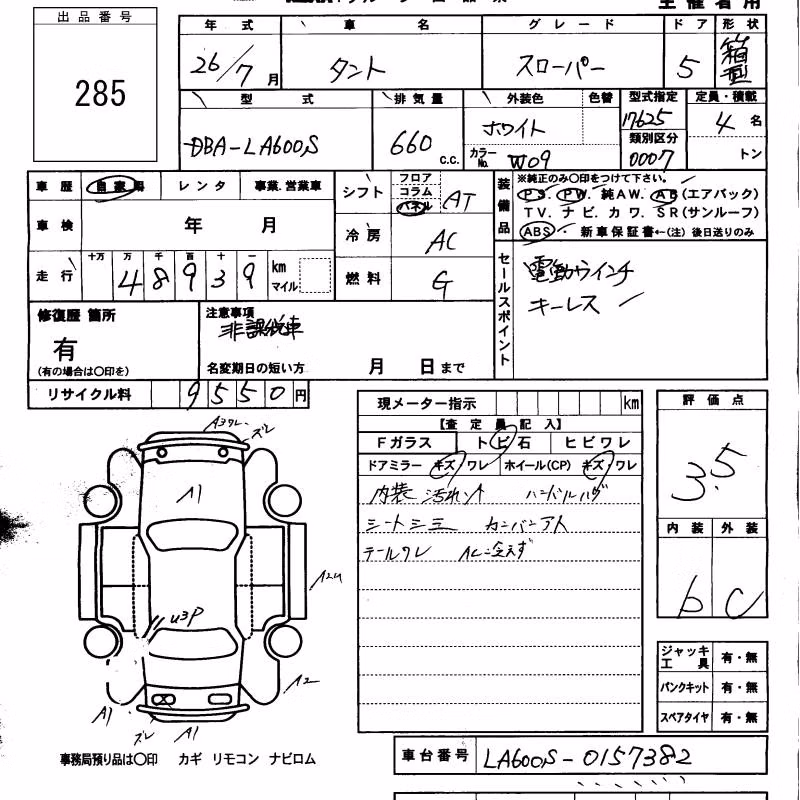 主 催 者 用
出 品 番 号
285
年 式
車 名
グ レ ー ド
ド ア
形 状
26/7 月
タント
スローパー
5
箱型
型 式
排 気 量
外装色
色替
型式指定
定員・積載
DBA-LA600S
660 c.c.
ホワイト
17625
4 名
カラーNo. W09
類別区分
0007
トン
車 歴
自家用
レ ン タ
事業.営業車
シフト
フロア
コラム
パネル
AT
車 検
年 月
冷 房
AC
走 行
十万 万 千 百 十 一
4 8 9 3 9
km
マイル
燃 料
G
装備品
※純正のみ〇印をつけて下さい。
PS. PW. 純AW. AB(エアバック)
TV. ナビ. カワ. SR(サンルーフ)
ABS ・ 新車保証書←(注) 後日送りのみ
セールスポイント
電動ウインチ
キーレス
修復歴 箇所
有
(有の場合は〇印を)
注意事項
非課税車
名変期日の短い方 月 日まで
リサイクル料 9550円
現メーター指示 km
【査 定 員 記 入】
Fガラス
トビ石
ヒビワレ
ドアミラー キズ/ワレ
ホイール(CP) キズ・ワレ
内装 汚れ
シート
テールワレ
評 価 点
3.5
内 装
外 装
b
C
A3ワレ
ズレ
A1
A2
U3P
A2
A1
ズレ
A1
ジャッキ
工 具
有・無
パンクキット
有・無
スペアタイヤ
有・無
事務局預り品は〇印 カギ リモコン ナビロム
車台番号
LA600S-0157382